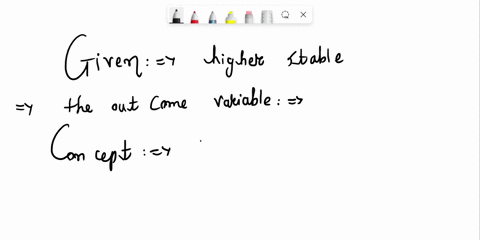 Given :=> higher stable
=> the out come variable :=>
Concept :=>